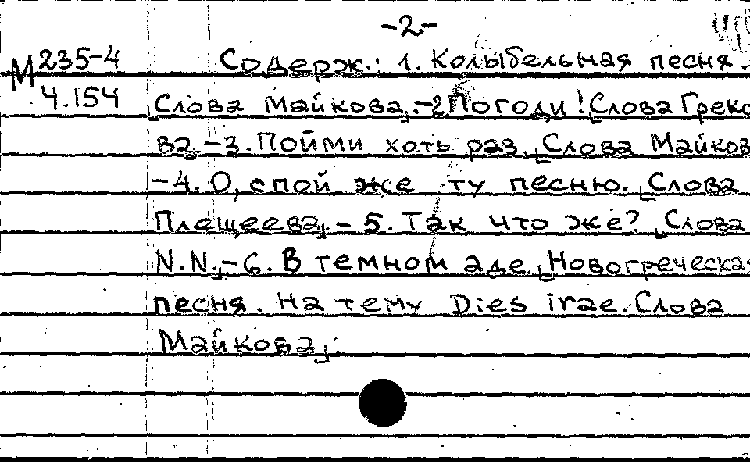 -2-
М 235-4 Содерж.: 1. Колыбельная песня.
4.154 Слова Майкова.-2 Погоди! Слова Греко
ва.-3. Пойми хоть раз. Слова Майков
-4. О, спой же ту песню. Слова
Плещеева.-5. Так что же? Слова
N.N.-6. В темном аде. Новогреческая
песня. На тему Dies irae. Слова
Майкова.